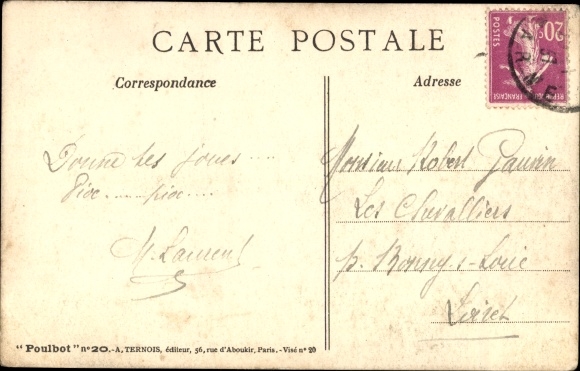 CARTE POSTALE
Correspondance
Adresse
20c
POSTES
Donne tes joues....
Pioc......pioc....
M. Laurent
Monsieur Robert Gauvin
Les Chevalliers
p. Bonny-s-Loire
Loiret
"Poulbot" nº 20.-A. TERNOIS, éditeur, 56, rue d'Aboukir, Paris.-Visé nº 20